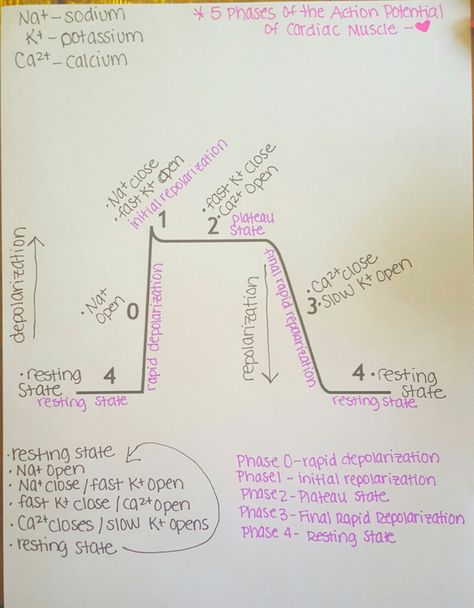 Na+ - sodium
K+ - potassium
Ca2+ - calcium
* 5 Phases of the Action Potential
of Cardiac Muscle - ♥
• Na+ close
• fast K+ open
initial repolarization
1
• fast K+ close
• Ca2+ open
2 plateau
state
depolarization
• Na+
open
0
rapid depolarization
repolarization
final rapid repolarization
• Ca2+ close
3 • slow K+ open
• resting
state
4
resting state
4 • resting
state
resting state
• resting state
• Na+ open
• Na+ close / fast K+ open
• fast K+ close / Ca2+ open
• Ca2+ closes / slow K+ opens
• resting state
Phase 0 - rapid depolarization
Phase 1 - initial repolarization
Phase 2 - Plateau state
Phase 3 - Final Rapid Repolarization
Phase 4 - Resting State